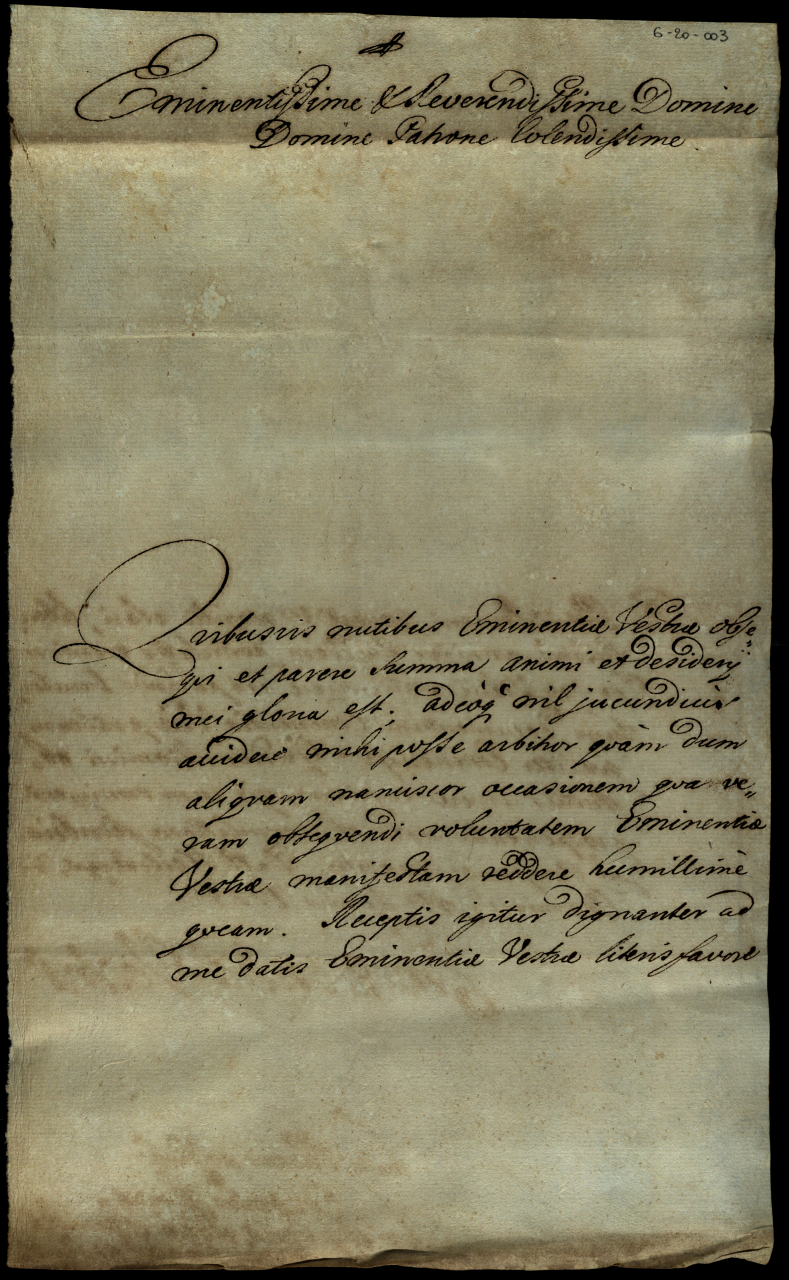 6-20-003
Eminentissime & Reverendissime Domine
Domine Patrone Colendissime.
Quibusvis nutibus Eminentiæ Vestræ obse„
qvi et parere summa animi et desiderij
mei gloria est; adeóq; nil jucundius
accidere mihi posse arbitror qvàm dum
aliqvam nanciscor occasionem qva ve„
ram obseqvendi voluntatem Eminentiæ
Vestræ manifestam reddere humillimè
qveam. Receptis igitur dignanter ad
me datis Eminentiæ Vestræ literis favore